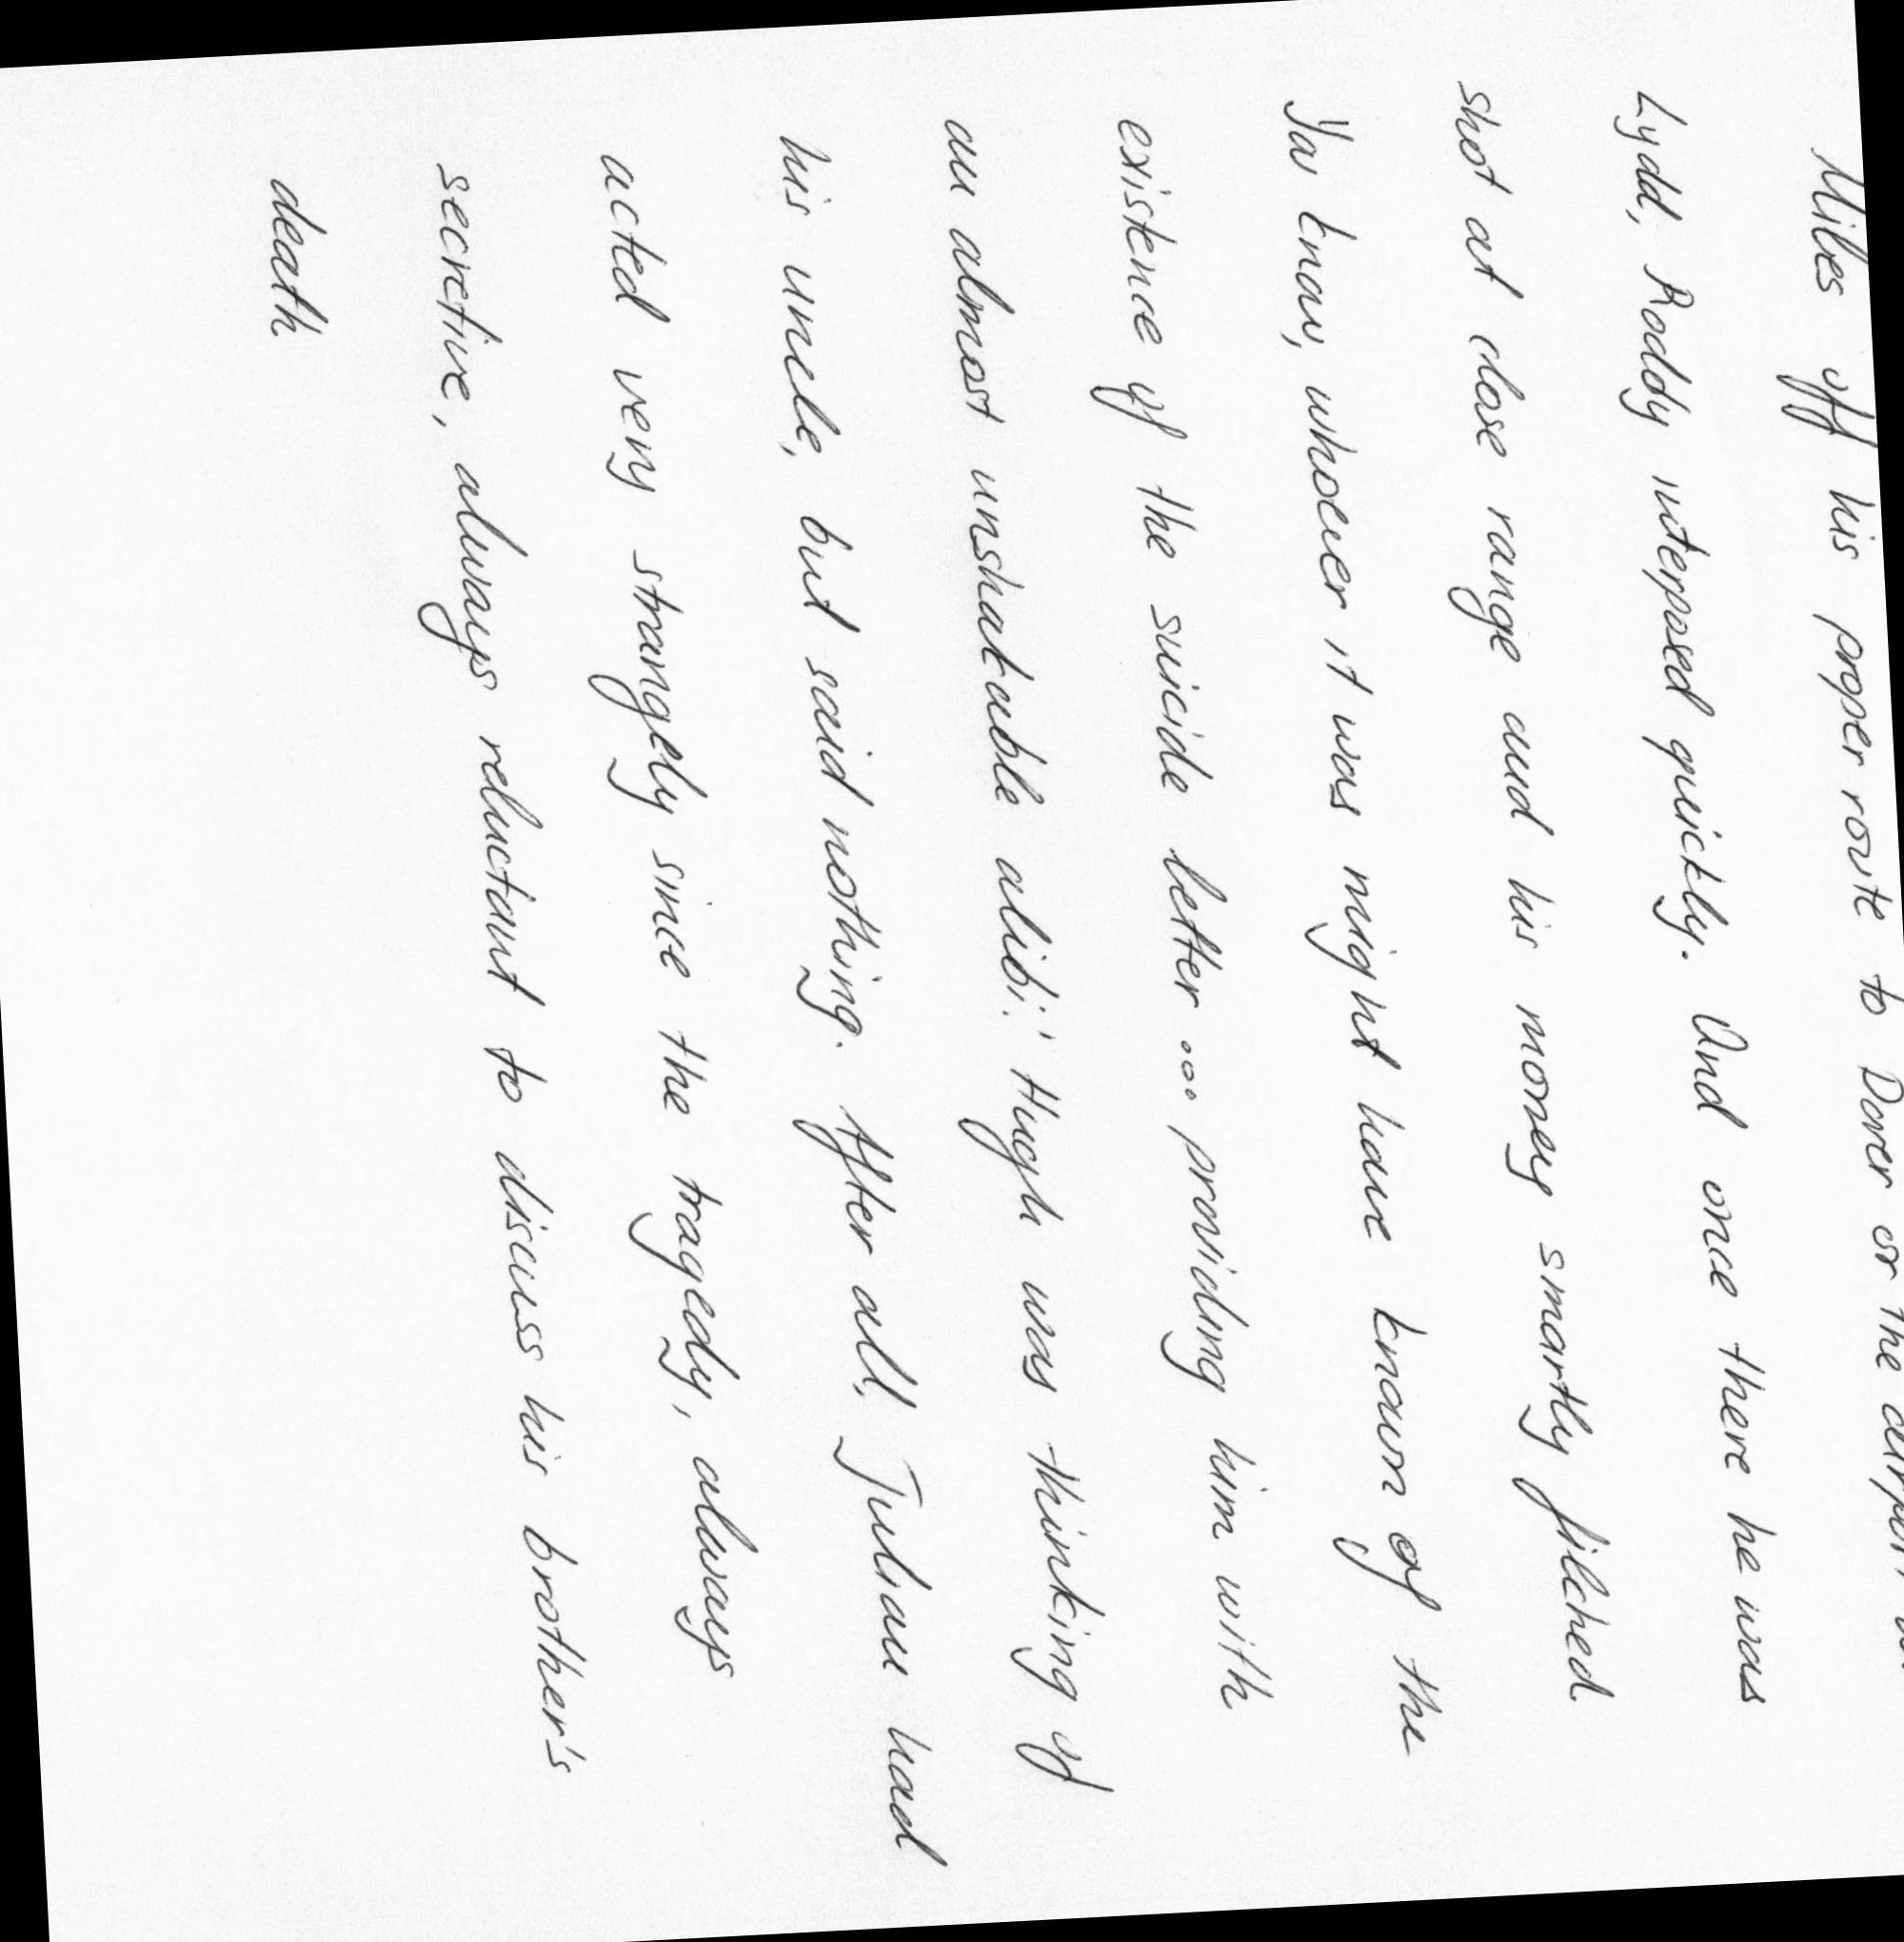 Miles off his proper route to Dover or the
Lydd, Roddy interposed quickly. And once there he was
shot at close range and his money smartly filched
You know, whoever it was might have known of the
existence of the suicide letter ... providing him with
an almost unshakeable alibi.' Hugh was thinking of
his uncle, but said nothing. After all, Julian had
acted very strangely since the tragedy, always
secretive, always reluctant to discuss his brother's
death.